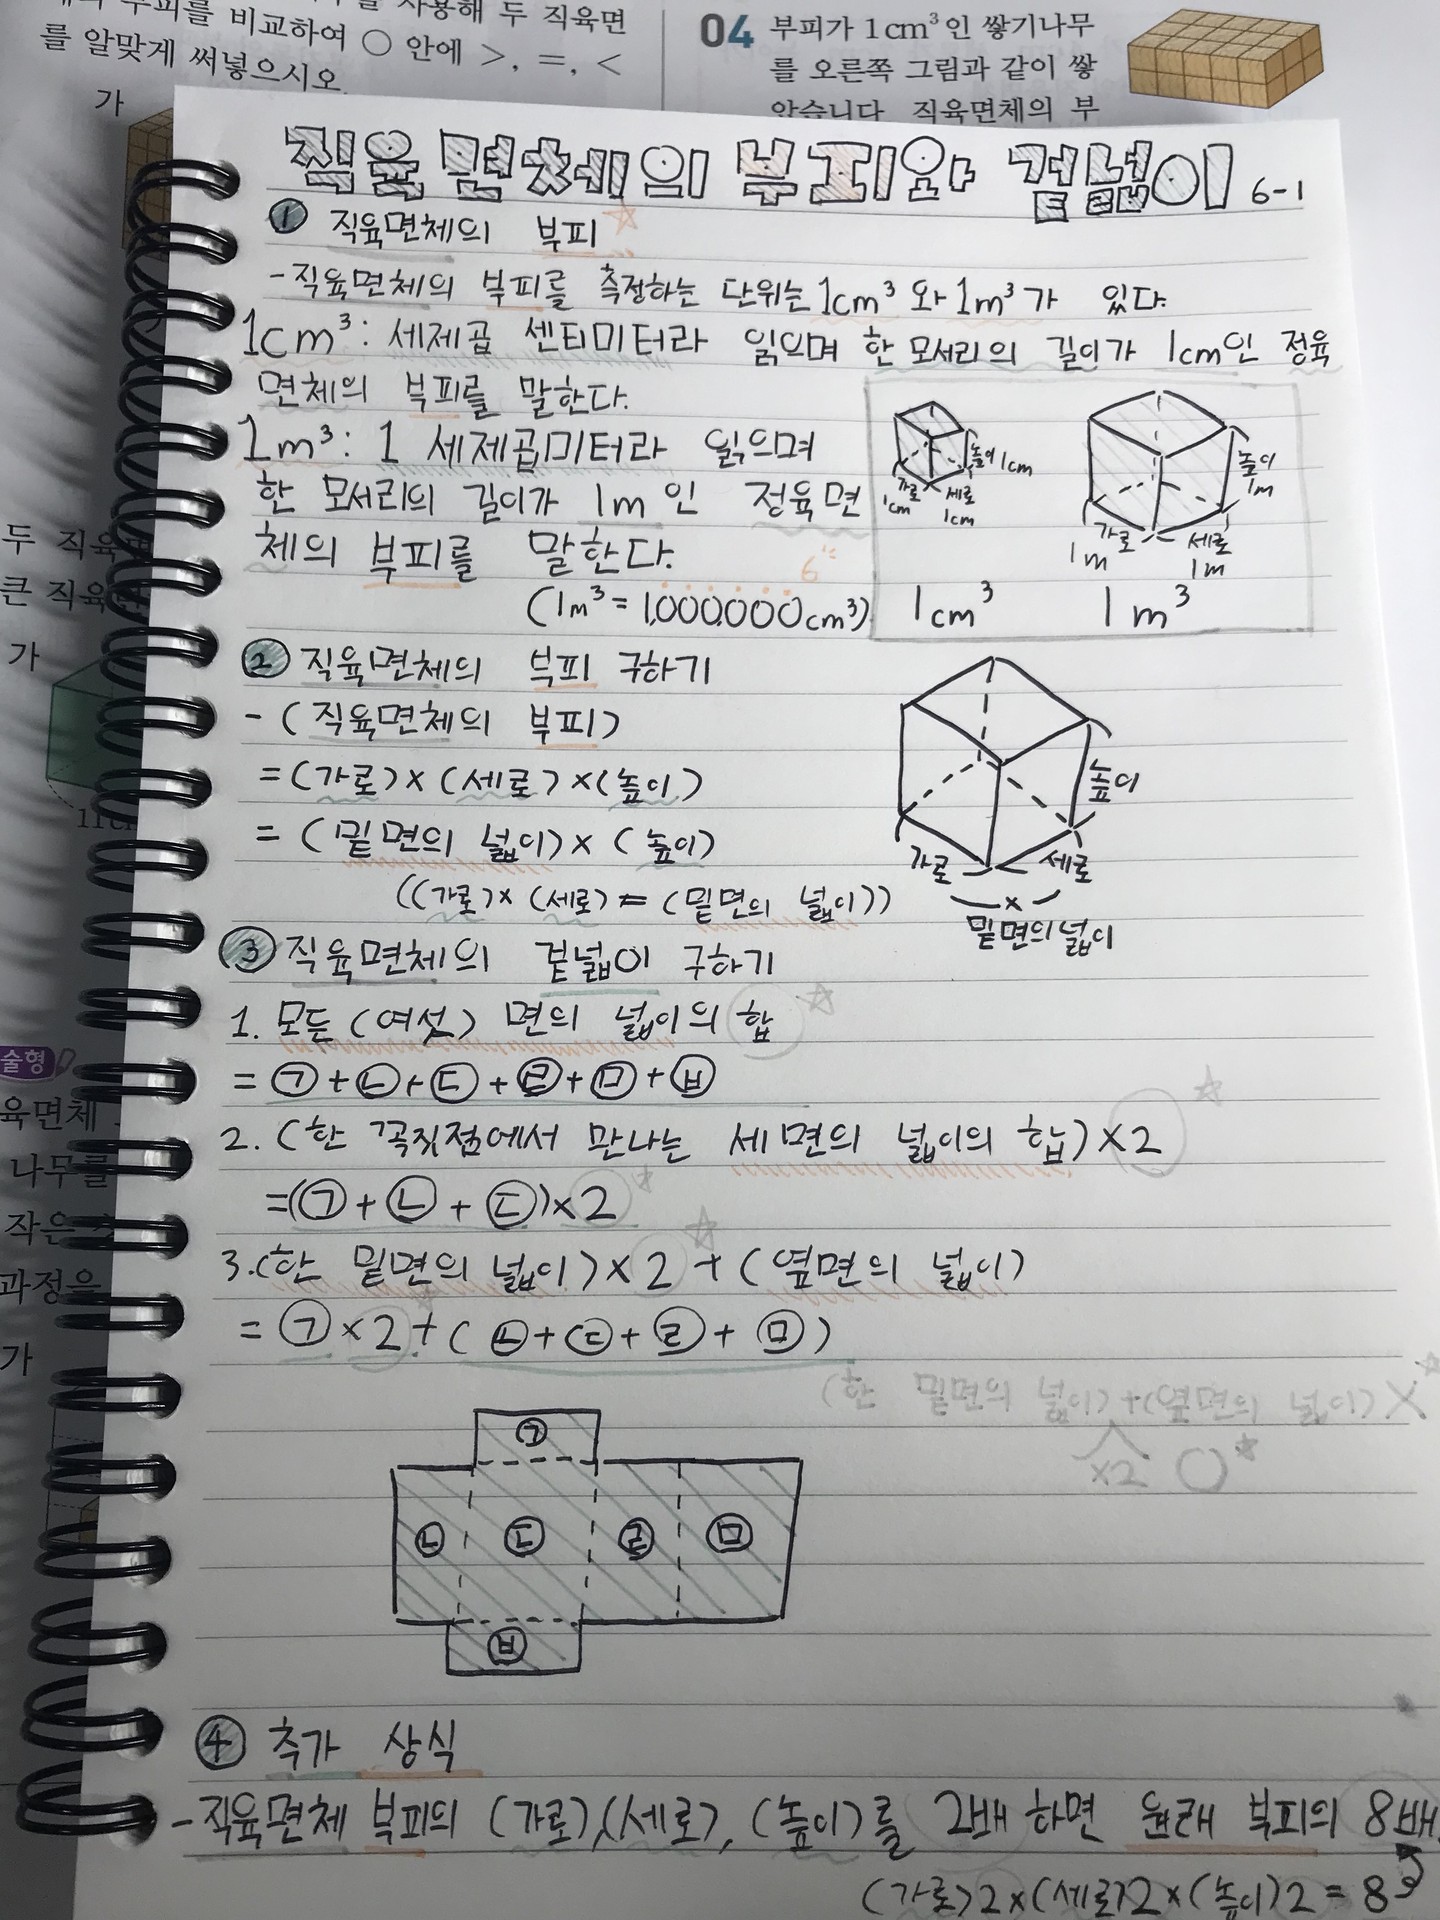 부피를 비교하여 ○ 안에 >, =, <
를 알맞게 써넣으시오
가
04 부피가 1cm³인 쌓기나무
를 오른쪽 그림과 같이 쌓
았습니다. 직육면체의 부
직육면체의 부피와 겉넓이 6-1
① 직육면체의 부피
- 직육면체의 부피를 측정하는 단위는 1cm³와 1m³가 있다.
1cm³: 세제곱 센티미터라 읽으며 한 모서리의 길이가 1cm인 정육
면체의 부피를 말한다.
1m³: 1 세제곱미터라 읽으며
한 모서리의 길이가 1m인 정육면
체의 부피를 말한다.
6
(1m³ = 1,000,000cm³)
높이 1cm
가로 1cm
세로 1cm
1cm³
높이 1m
가로 1m
세로 1m
1m³
② 직육면체의 부피 구하기
- (직육면체의 부피)
= (가로) × (세로) × (높이)
= (밑면의 넓이) × (높이)
((가로) × (세로) = (밑면의 넓이))
높이
가로
세로
×
밑면의 넓이
③ 직육면체의 겉넓이 구하기
1. 모든 (여섯) 면의 넓이의 합
= ㉠ + ㉡ + ㉢ + ㉣ + ㉤ + ㉥
2. (한 꼭짓점에서 만나는 세 면의 넓이의 합) × 2
= (㉠ + ㉡ + ㉢) × 2
3. (한 밑면의 넓이) × 2 + (옆면의 넓이)
= ㉠ × 2 + (㉡ + ㉢ + ㉣ + ㉤)
(한 밑면의 넓이) + (옆면의 넓이) X
×2 ○
㉠
㉡ ㉢ ㉣ ㉤
㉥
④ 추가 상식
- 직육면체 부피의 (가로), (세로), (높이)를 2배 하면 원래 부피의 8배.
(가로)2 × (세로)2 × (높이)2 = 8
두 직육면
큰 직육
가
11cm
술형
육면체
나무를
작은
과정을
가